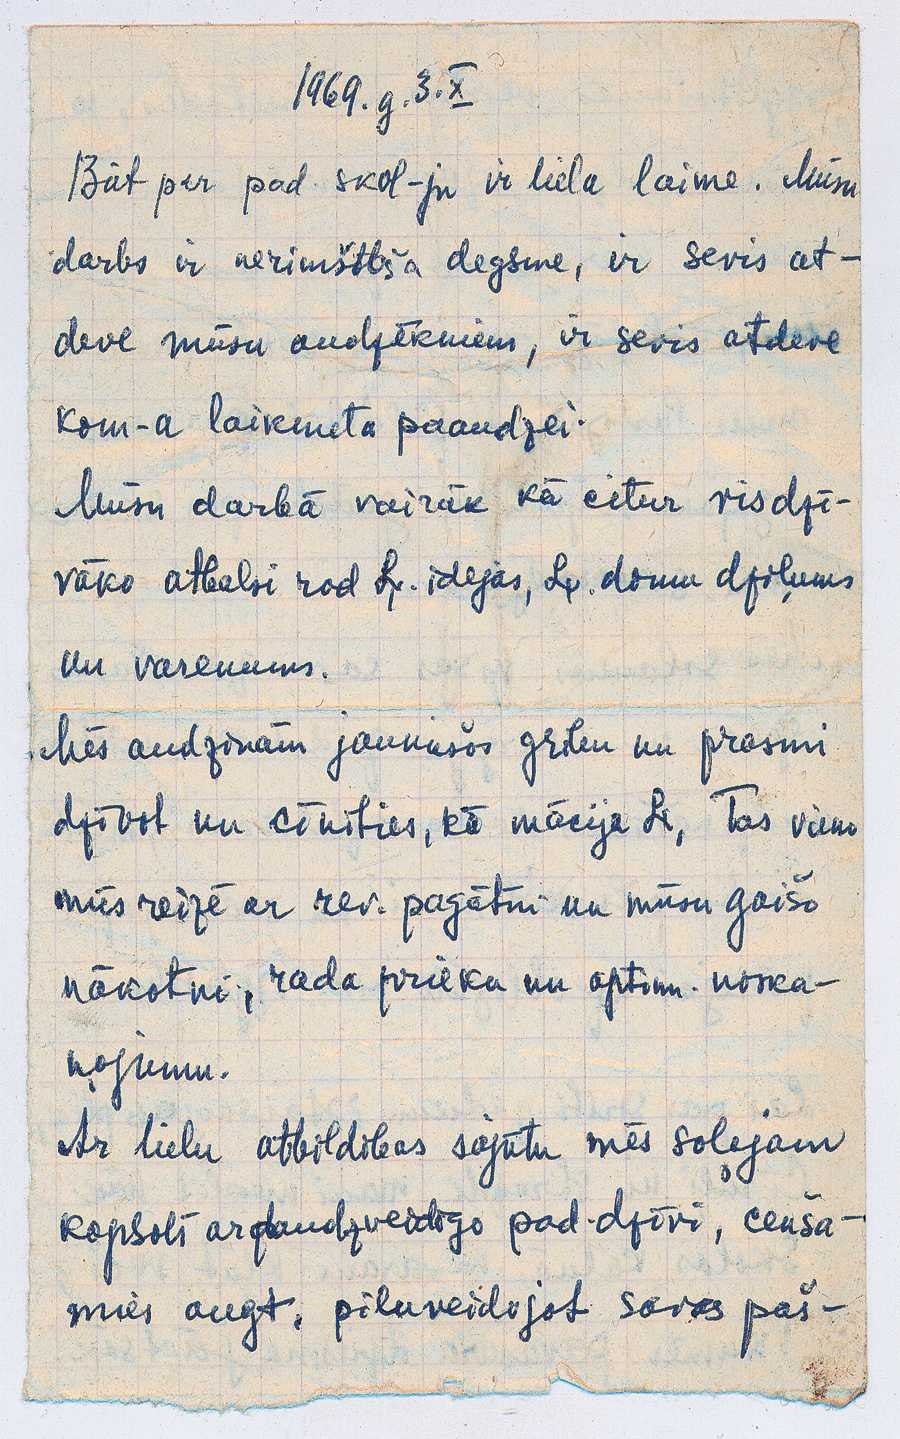 1969. g. 3. X
Būt par pad. skol-ju ir liela laime. Mūsu
darbs ir nerimstoša degsme, ir sevis at-
deve mūsu audzēkņiem, ir sevis atdeve
kom-a laikmeta paaudzei.
Mūsu darbā vairāk kā citur visdzī-
vāko atbalsi rod Ļ. idejas, Ļ. domu dziļums
un varenums.
Mēs audzinām jauniešos gribu un prasmi
dzīvot un cīnīties, kā mācīja Ļ, Tas vieno
mūs reizē ar rev. pagātni un mūsu gaišo
nākotni, rada prieku un optim. noska-
ņojumu.
Ar lielu atbildības sajūtu mēs soļojam
kopsolī ar daudzveidīgo pad. dzīvi, cenša-
mies augt, pilnveidojot savas paš-